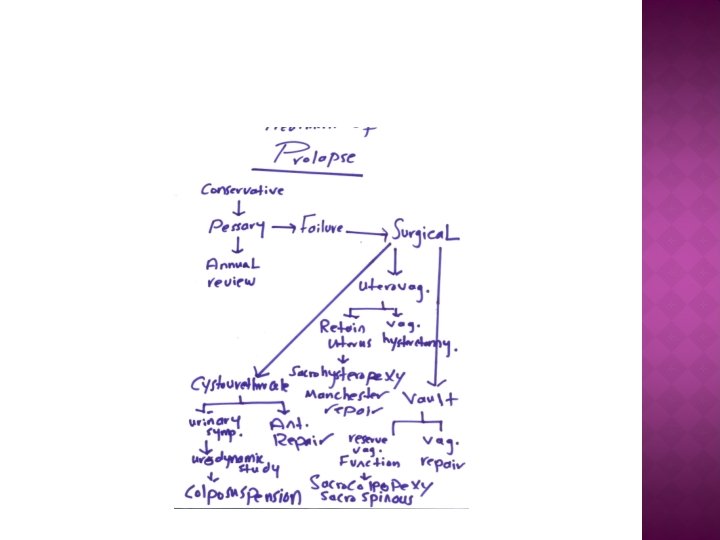 Prolapse
Conservative
Pessary → Failure → Surgical
Annual
review
Uterovag.
Retain
Uterus
vag.
hysterectomy.
Sacrohysteropexy
Manchester
repair
Cystourethrocele
urinary
symp.
urodynamic
study
Colposuspension
Ant.
Repair
Vault
reserve
vag.
Function
Sacrocolpopexy
Sacrospinous
vag.
repair